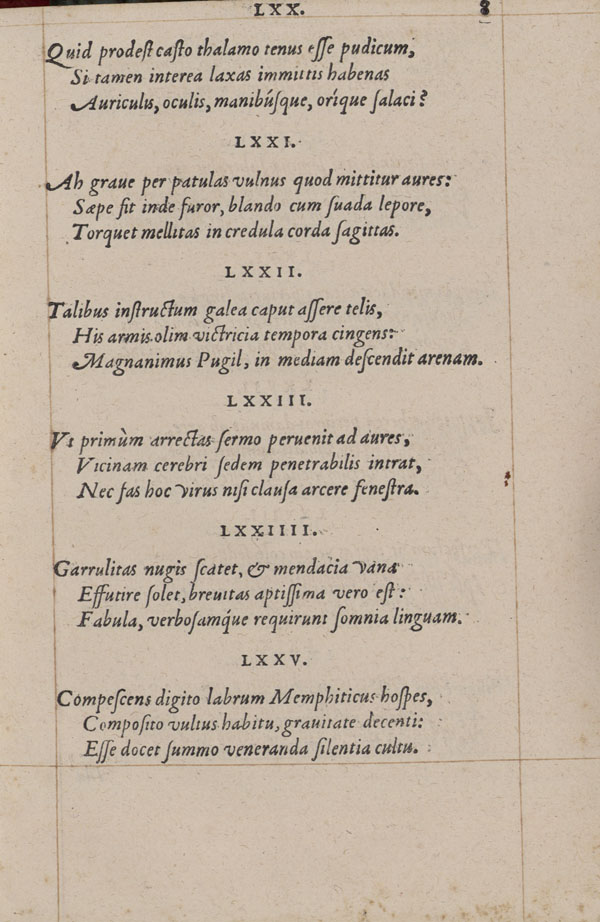 LXX. 8
Quid prodeſt caſto thalamo tenus eſſe pudicum,
Si tamen interea laxas immittis habenas
Auriculis, oculis, manibúſque, oríque ſalaci?
LXXI.
Ah graue per patulas vulnus quod mittitur aures:
Sæpe fit inde furor, blando cum ſuada lepore,
Torquet mellitas in credula corda ſagittas.
LXXII.
Talibus inſtructum galea caput aſſere telis,
His armis olim victricia tempora cingens:
Magnanimus Pugil, in mediam deſcendit arenam.
LXXIII.
Vt primùm arrectas ſermo peruenit ad aures,
Vicinam cerebri ſedem penetrabilis intrat,
Nec fas hoc virus niſi clauſa arcere feneſtra.
LXXIIII.
Garrulitas nugis ſcatet, & mendacia vana
Effutire ſolet, breuitas aptiſſima vero eſt:
Fabula, verboſamq́ue requirunt ſomnia linguam.
LXXV.
Compeſcens digito labrum Memphiticus hoſpes,
Compoſito vultus habitu, grauitate decenti:
Eſſe docet ſummo veneranda ſilentia cultu.